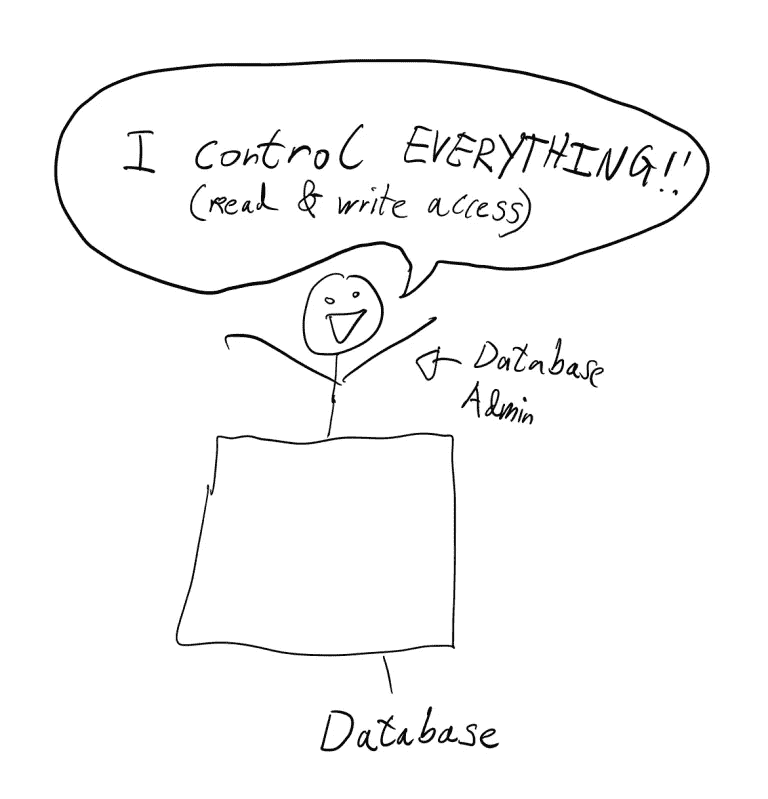 I control EVERYTHING!!
(read & write access)
Database
Admin
Database